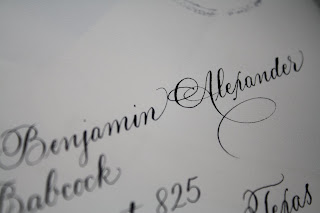 Benjamin Alexander
Babcock
825
Texas